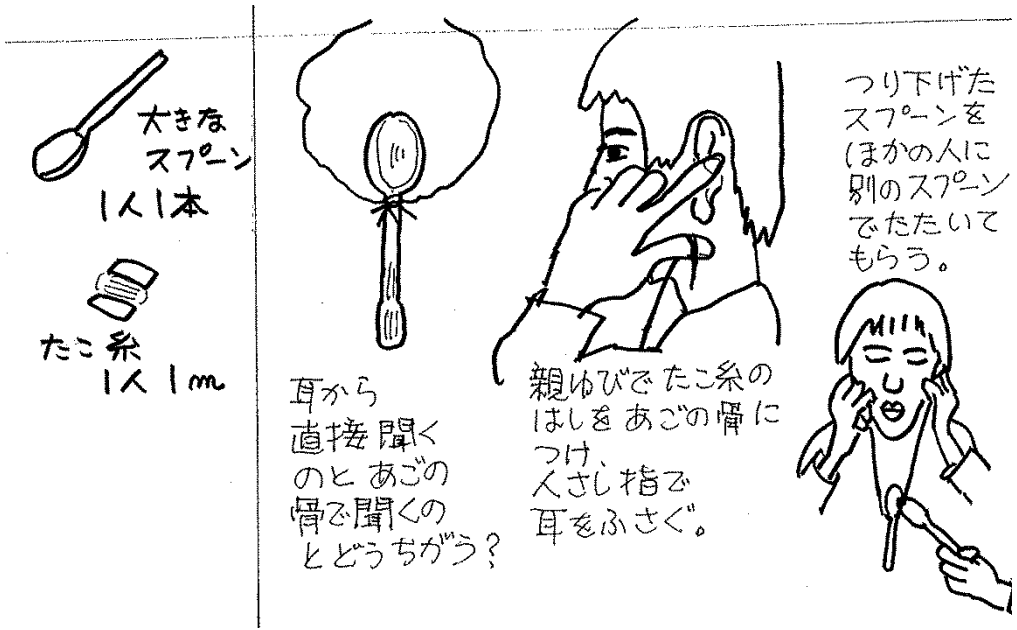 大きな
スプーン
1人1本
たこ糸
1人 1m
耳から
直接 聞く
のと あごの
骨で聞くの
とどうちがう?
親ゆびで たこ糸の
はしを あごの骨に
つけ、
人さし指で
耳をふさぐ。
つり下げた
スプーンを
ほかの人に
別のスプーン
でたたいて
もらう。